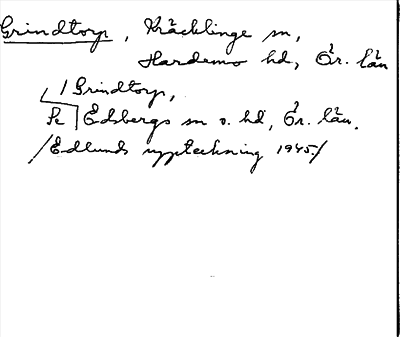 Grindtorp, Kräcklinge sn,
Hardemo hd, Ör. län
/ Grindtorp,
Se Edsbergs sn o. hd, Ör. län.
/Edlunds uppteckning 1945/